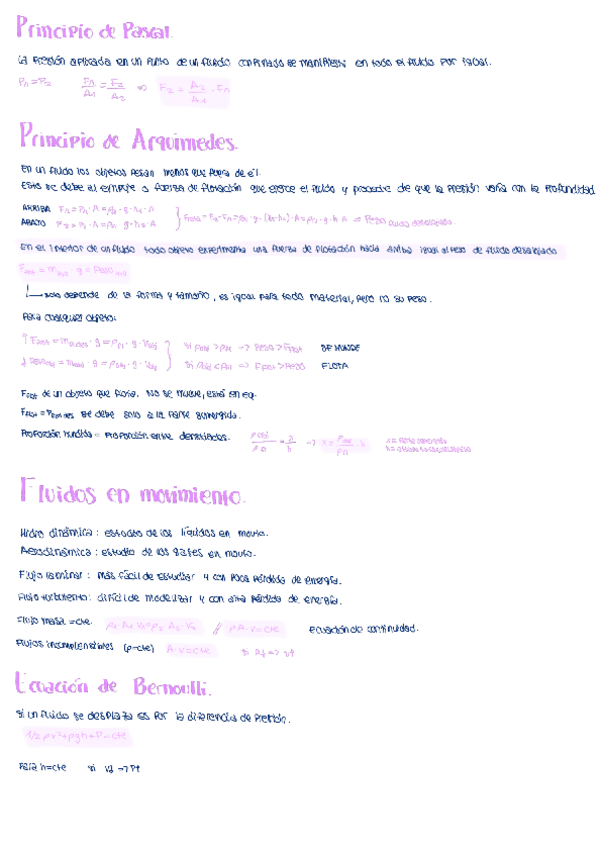 Principio de Pascal.
La presión aplicada en un punto de un fluido confinado se manifiesta en todo el fluido por igual.
P₁ = P₂ F₁/A₁ = F₂/A₂ => F₂ = A₂/A₁ · F₁
Principio de Arquímedes.
En un fluido los objetos pesan menos que fuera de él.
Esto se debe al empuje o fuerza de flotación que ejerce el fluido y procede de que la presión varía con la profundidad
ARRIBA F₁ = P₁ · A = ρ · g · h₁ · A
ABAJO F₂ = P₂ · A = ρ · g · h₂ · A
En el interior de un fluido todo objeto experimenta una fuerza de flotación hacia arriba igual al peso de fluido desalojado
solo depende de la forma y tamaño, es igual para todo material, pero no su peso.
Para cualquier objeto:
-> Peso > Fflot SE HUNDE
-> Fflot > Peso FLOTA
Fflot de un objeto que flota. No se mueve, está en eq.
se debe solo a la parte sumergida.
Proporción hundida = proporción entre densidades.
Fluidos en movimiento.
Hidro dinámica: estudio de los líquidos en movto.
Aerodinámica: estudio de los gases en movto.
Flujo laminar: más fácil de estudiar y con poca pérdida de energía.
Flujo turbulento: difícil de modelizar y con alta pérdida de energía.
Flujo masa = cte. ρ₁ · A₁ · v₁ = ρ₂ · A₂ · v₂ // ρ · A · v = cte ecuación de continuidad.
Flujos incompresibles (ρ = cte) A · v = cte
Ecuación de Bernoulli.
Si un fluido se desplaza es por la diferencia de presión.
1/2 ρv² + ρgh + P = cte
Para h = cte si